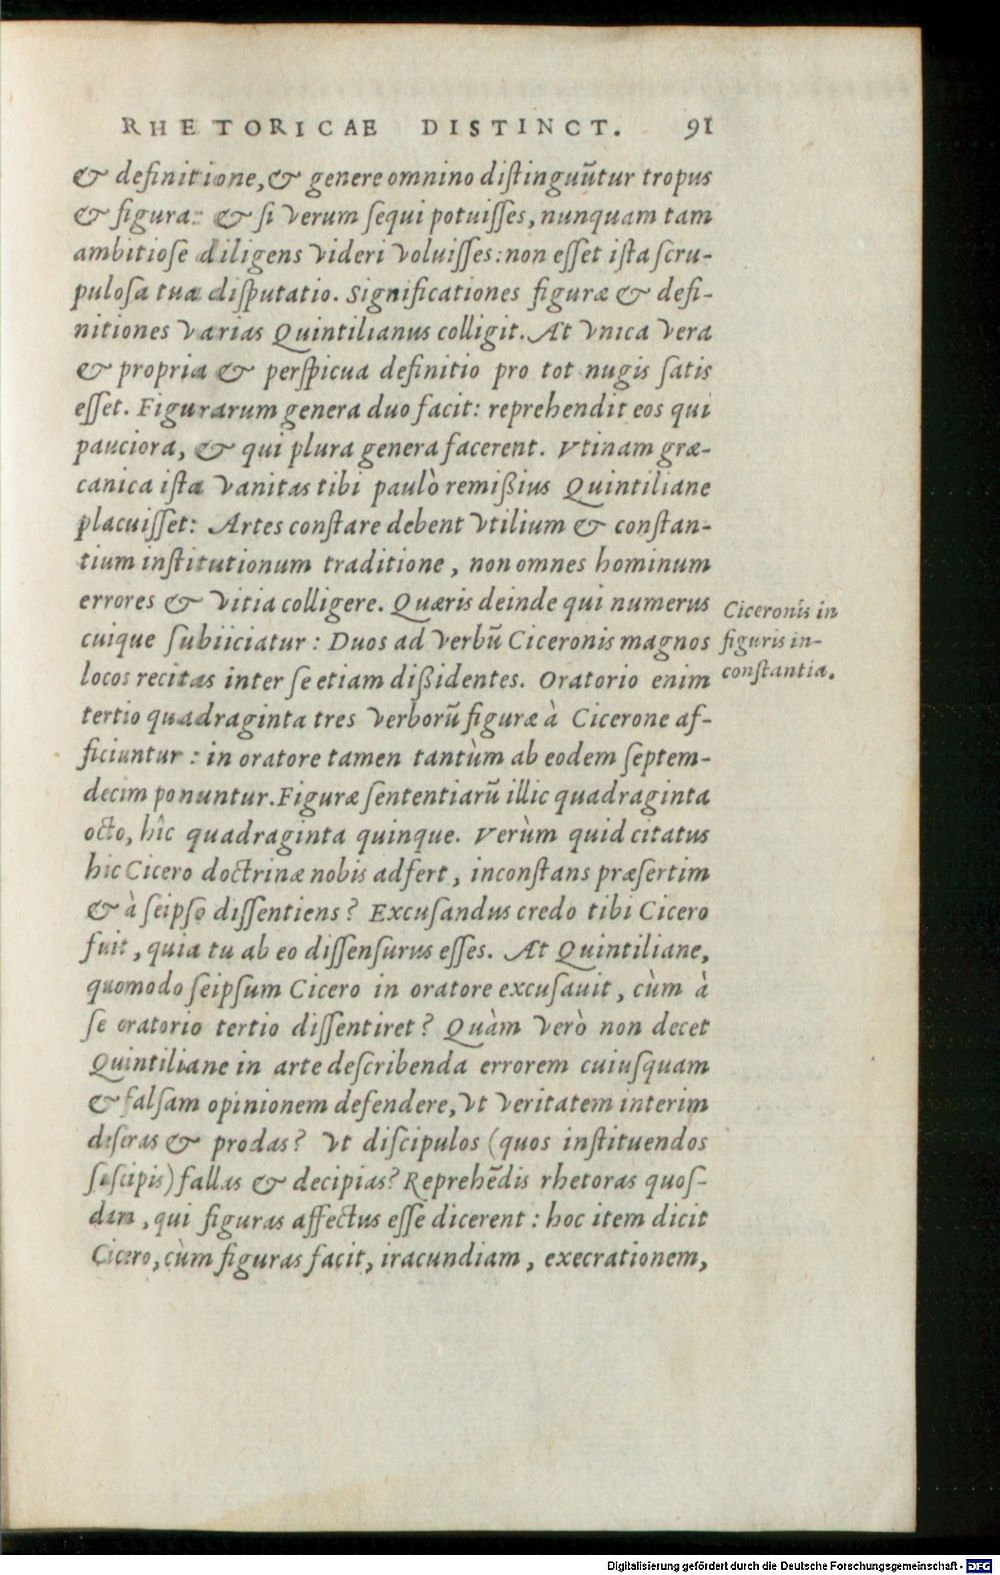 RHETORICAE DISTINCT. 91
& definitione, & genere omnino distinguũtur tropus
& figura: & si verum sequi potuisses, nunquam tam
ambitiose diligens videri voluisses: non esset ista scru-
pulosa tua disputatio. Significationes figuræ & defi-
nitiones varias Quintilianus colligit. At vnica vera
& propria & perspicua definitio pro tot nugis satis
esset. Figurarum genera duo facit: reprehendit eos qui
pauciora, & qui plura genera facerent. Vtinam græ-
canica ista vanitas tibi paulò remißius Quintiliane
placuisset: Artes constare debent vtilium & constan-
tium institutionum traditione, non omnes hominum
errores & vitia colligere. Quæris deinde qui numerus
cuique subiiciatur: Duos ad verbũ Ciceronis magnos
locos recitas inter se etiam dißidentes. Oratorio enim
tertio quadraginta tres verborũ figuræ à Cicerone af-
ficiuntur: in oratore tamen tantùm ab eodem septem-
decim ponuntur. Figuræ sententiarũ illic quadraginta
octo, hîc quadraginta quinque. Verùm quid citatus
hic Cicero doctrinæ nobis adfert, inconstans præsertim
& à seipso dissentiens? Excusandus credo tibi Cicero
fuit, quia tu ab eo dissensurus esses. At Quintiliane,
quomodo seipsum Cicero in oratore excusauit, cùm à
se oratorio tertio dissentiret? Quàm verò non decet
Quintiliane in arte describenda errorem cuiusquam
& falsam opinionem defendere, vt veritatem interim
deseras & prodas? vt discipulos (quos instituendos
suscipis) fallas & decipias? Reprehẽdis rhetoras quos-
dam, qui figuras affectus esse dicerent: hoc item dicit
Cicero, cùm figuras facit, iracundiam, execrationem,
Ciceronis in
figuris in-
constantia.
Digitalisierung gefördert durch die Deutsche Forschungsgemeinschaft - DFG